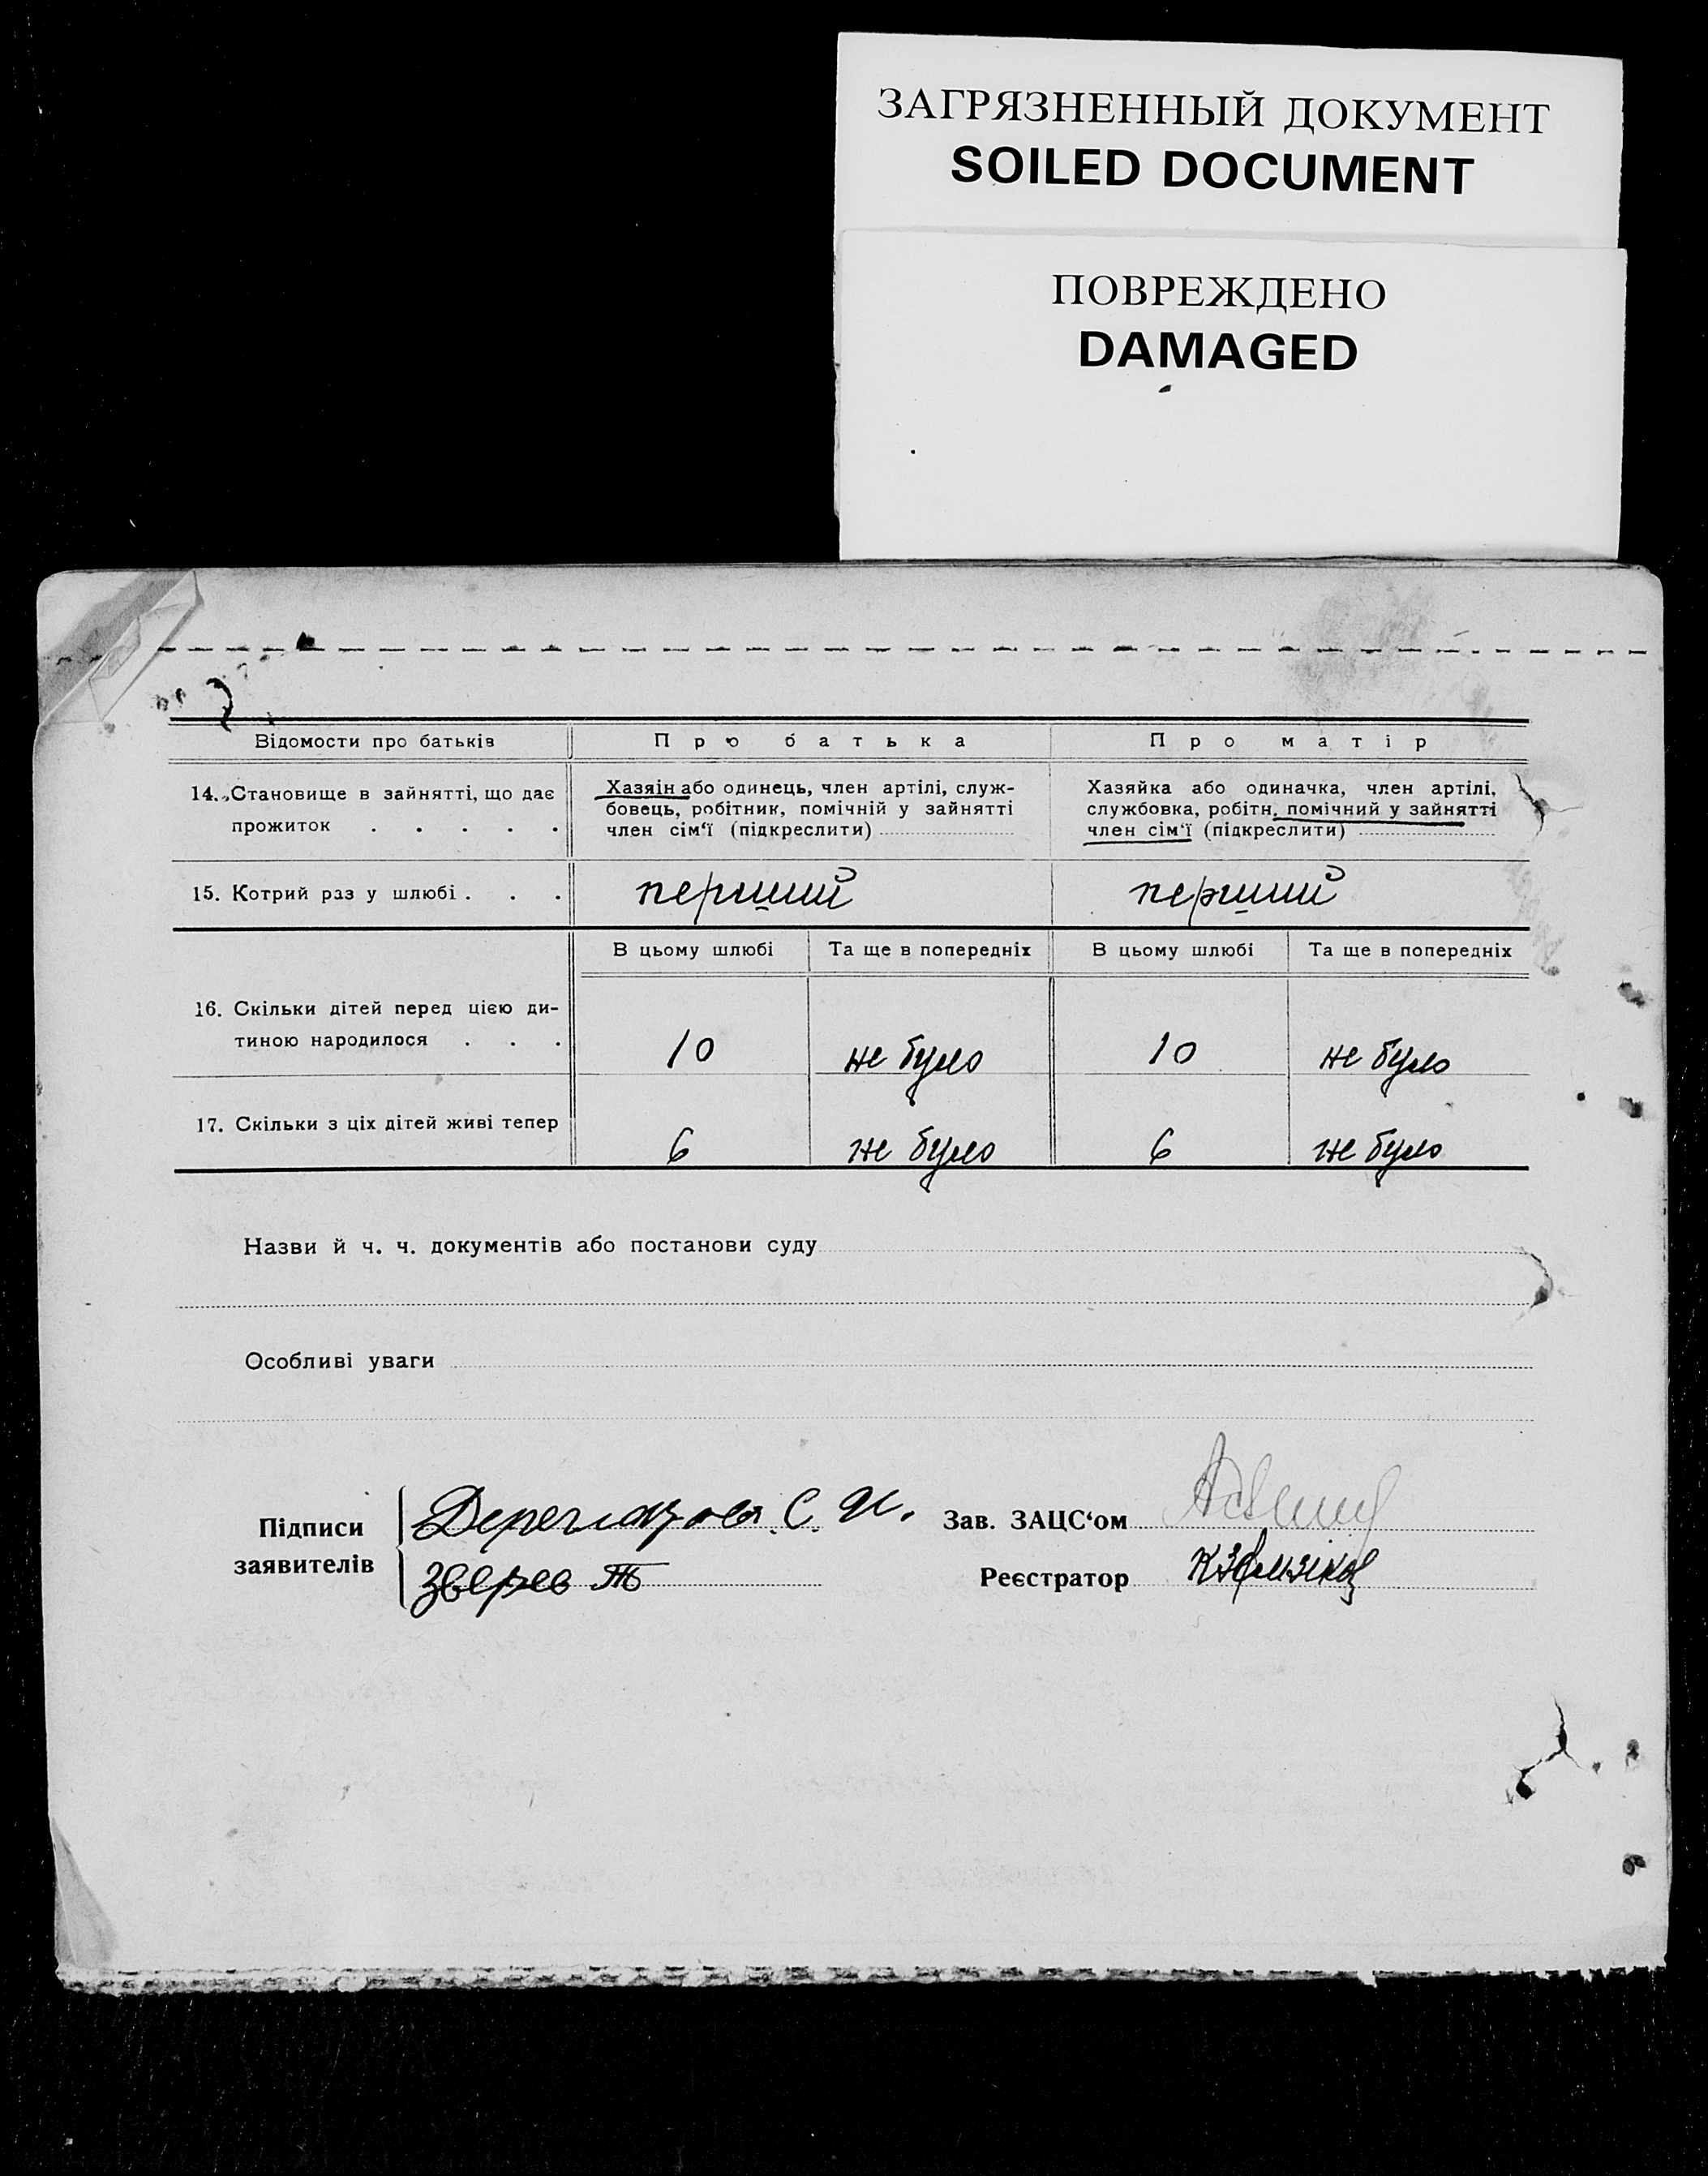 ЗАГРЯЗНЕННЫЙ ДОКУМЕНТ
SOILED DOCUMENT
ПОВРЕЖДЕНО
DAMAGED
Відомости про батьків
Про батька
Про матір
14. Становище в зайнятті, що дає
прожиток . . . . .
Хазяін або одинець, член артілі, служ-
бовець, робітник, помічній у зайнятті
член сім‘ї (підкреслити)
Хазяйка або одиначка, член артілі,
службовка, робітн. помічний у зайнятті
член сім‘ї (підкреслити)
15. Котрий раз у шлюбі . . .
перший
перший
В цьому шлюбі
Та ще в попередніх
В цьому шлюбі
Та ще в попередніх
16. Скільки дітей перед цією ди-
тиною народилося . . .
10
не було
10
не було
17. Скільки з ціх дітей живі тепер
6
не було
6
не було
Назви й ч. ч. документів або постанови суду
Особливі уваги
Підписи
заявителів
С. И.
Зверев Т
Зав. ЗАЦС‘ом
Реєстратор